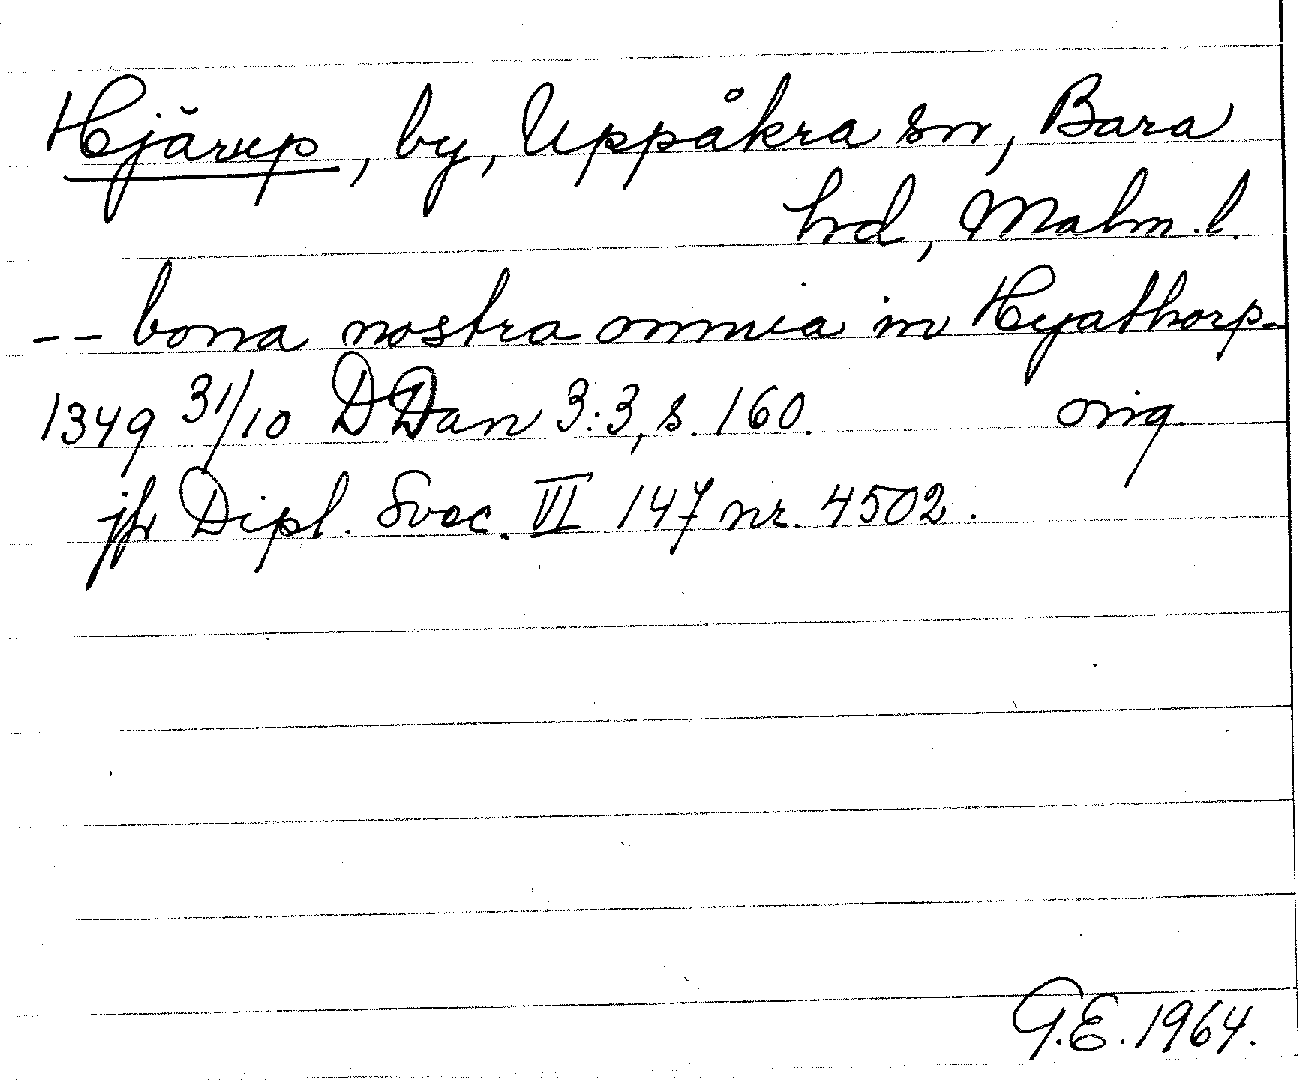 Hjärup, by, Uppåkra sn, Bara
hd, Malm. l.
-- bona nostra omnia in Hyathorp-
1349 31/10 D Dan 3:3, s. 160. orig
jfr Dipl. Svec. VI 147 nr. 4502.
G.E. 1964.